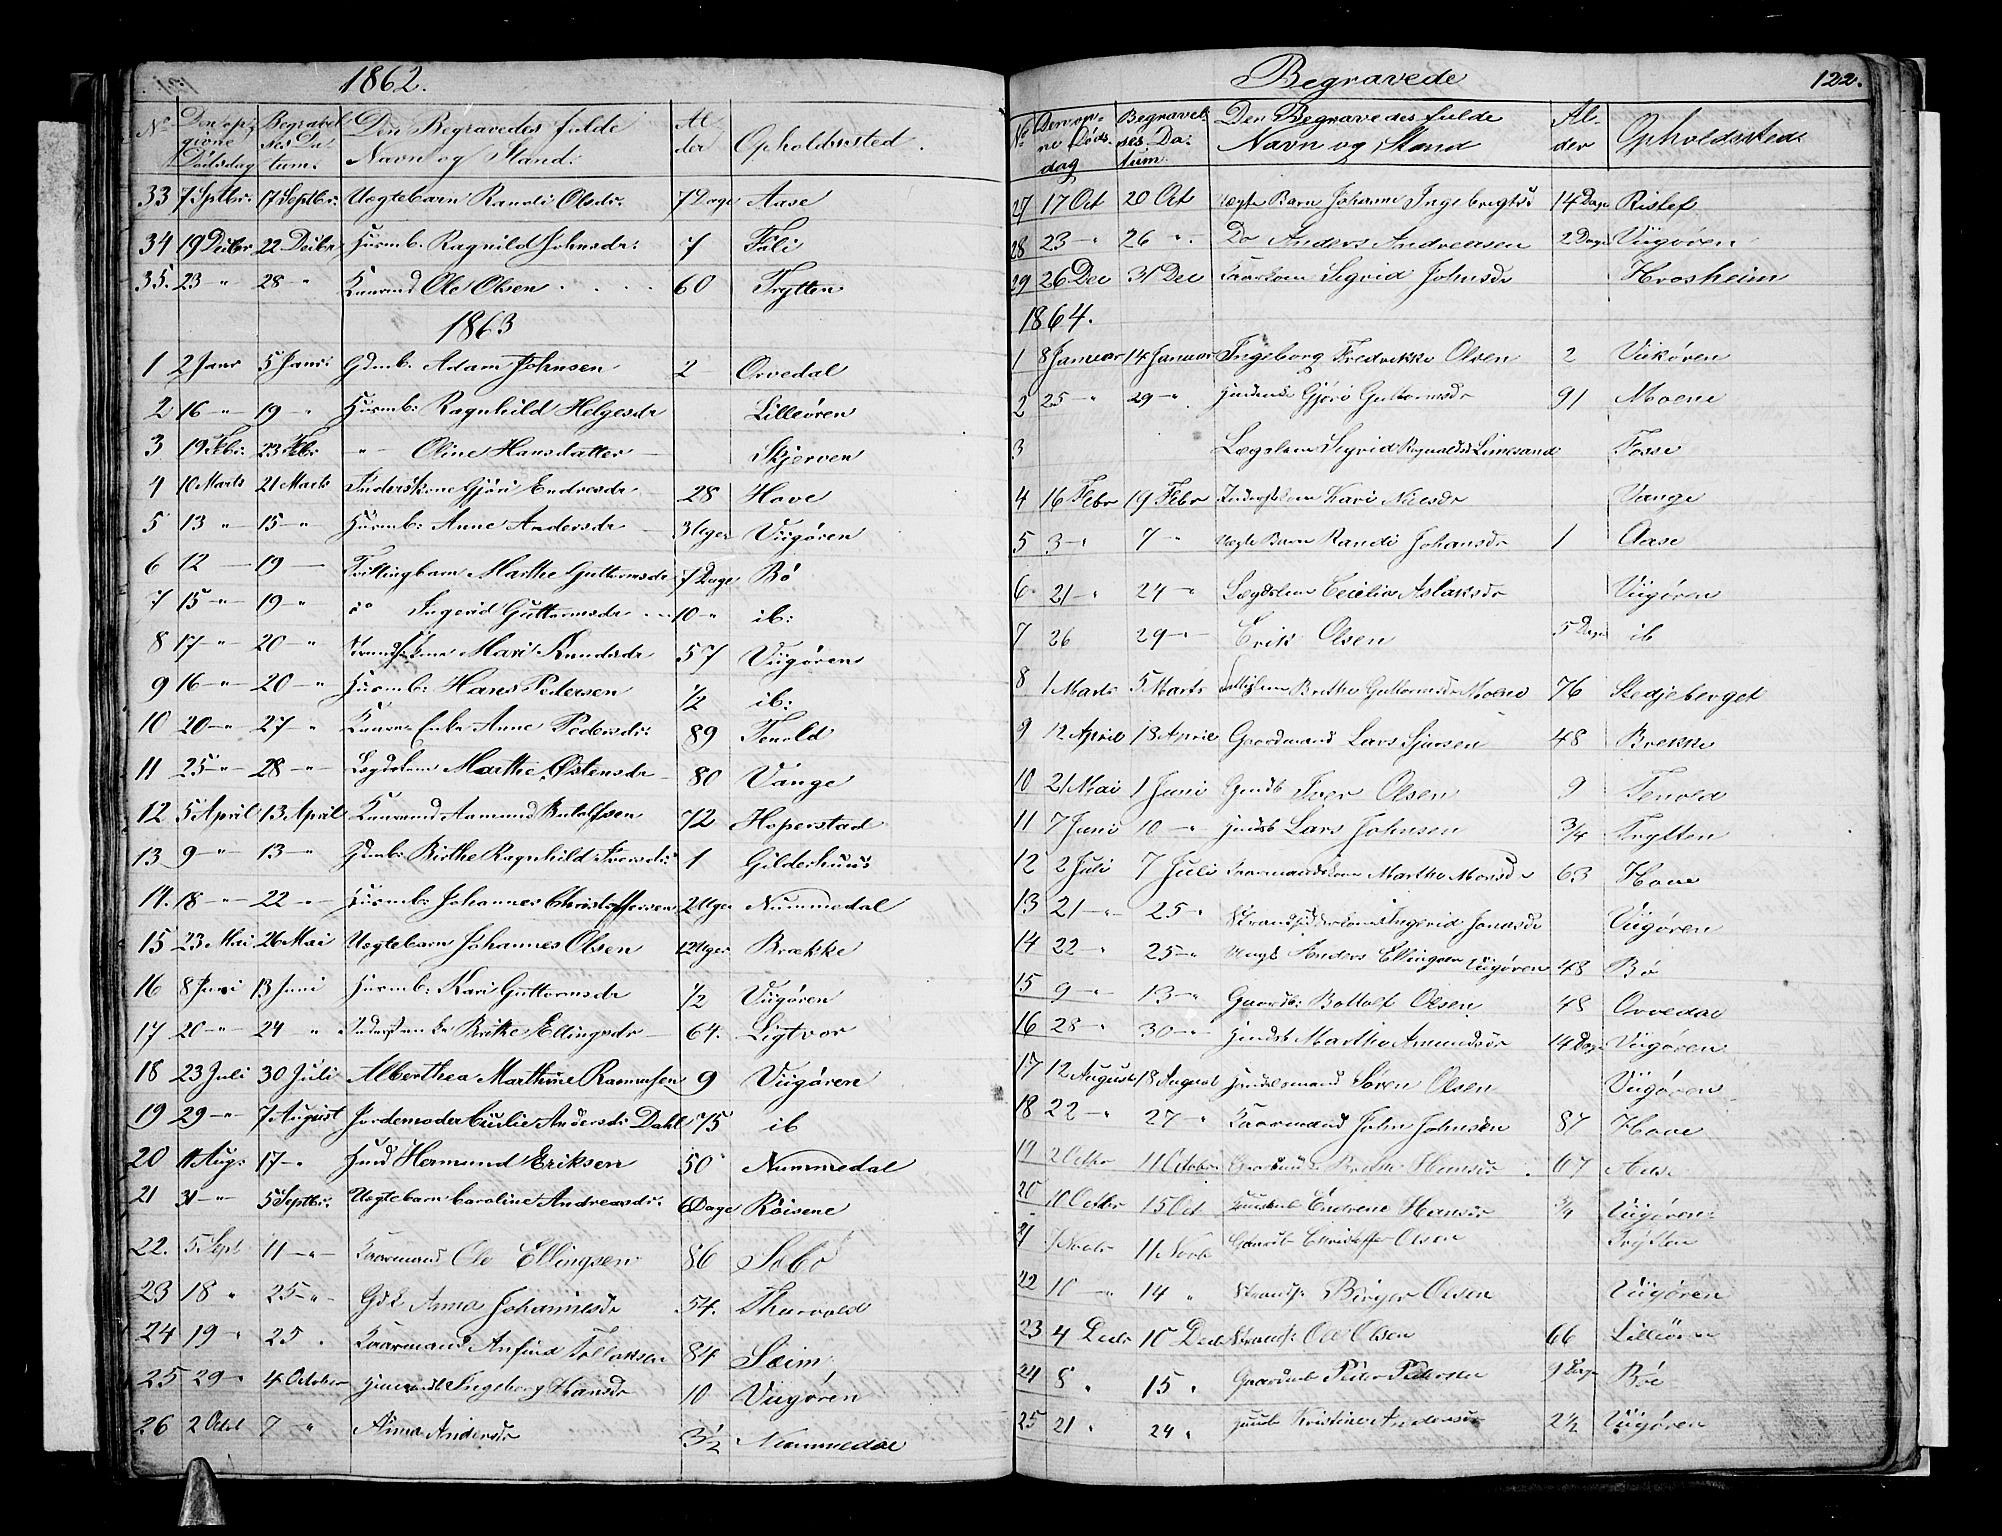 1862.
No Den opgivne Dødsdag Begravelses Datum. Den Begravedes fulde Navn og Stand. Alder Opholdssted.
33 7 Septbr: 17 Septbr: Uegtebarn Randi Olsdr: 7 Dage Aase
34 19 Decbr 22 Decbr Huusmb. Ragnild Johnsdr: 7 Føli
35. 23 " 28 " Kaarmd Ole Olsen 60 Trytten
1863
1 2 Janr 5 Janr: Gdmb. Adam Johnsen 2 Orvedal
2 16 -"- 19 -"- Huusmb: Ragnhild Helgesdr Lilleøren
3 19 Febr: 23 Febr -"- Oline Hansdatter Skjerven
4 10 Marts 21 Marts Inderstkone Gjøri Endresdr 28 Hove
5 13 -"- 15 -"- Huusmb: Anne Andersdr 3 Uger Viigøren
6 12 - 19 - Tvillingbarn Marthe Guttormsdr 7 Dage Bø
7 15 -"- 19 -"- do Ingerid Guttormsdr 10 -"- ib:
8 17 -"- 20 -"- Strands.kone Mari Knudsdr 57 Viigøren
9 16 -"- 20 -"- Huusmb: Hans Pedersen 1/2 ib:
10 20 -"- 27 -"- Kaarm. Enke Anne Pedersdr: 89 Tenold
11 25 -"- 28 -"- Legdslem Marthe Østensdr 80 Vange
12 5 April 13 April Kaarmand Aamund Botolfsen 72 Hoperstad
13 9 -"- 13 -"- Gdmb: Birthe Ragnhild Iversdr: 1 Gilderhuus
14. 18 -"- 22 -"- Huusmb: Johannes Christoffersen 2 Uger Nummedal
15 23 Mai 26 Mai Uegtebarn Johannes Olsen 12 Uger Brække
16 8 Juni 13 Juni Huusmb: Kari Guttormsdr 1/2 Viigøren
17 20 -"- 24 -"- Inderst Enke Brithe Ellingsdr 64. Ligtvor
18 23 Juli 30 Juli Alberthea Marthine Rasmussen 9 Viigøren
19 29 -"- 7 August Jordemoder Cicilie Andersdr Dahl 75 ib
20 11 Aug: 17 -"- Huusmd Hermund Eriksen 50 Nummedal
21 31 -"- 5 Septbr: Uegtebarn Caroline Andreasdr: 6 Dage Røisene
22. 5 Sept 11 -"- Kaarmand Ole Ellingsen 86 Sæbø
23 18 " 25 -"- Gdk Anna Johannesdr 54. Thurvold
24 19 " 25 " Kaarmand Anfind Tollaksen 84 Seim
25 29 " 4 October Huusmandsb Ingeborg Hansdr 10 Viigøren
26 2 Octob 7 " Anna Andersdr 3 1/2 Nummedal
Begravede 122.
No Den opgivne Dødsdag Begravelses Datum. Den Begravedes fulde Navn og Stand Alder Opholdssted
27 17 Oct 20 Oct Uægte Barn Johanne Ingebregtsdr 14 Dage Ristef
28 23 -"- 26 " Do Anders Andreasen 2 Dage Viigøren
29 26 Dec 31 Dec Kaarkone Sigrid Johnsdr Hvosheim
1864.
1 8 Januar 14 Januar Ingeborg Fredrikke Olsen 2 Viikøren
2 25 -"- 29 -"- Gjøri Guttormsdr 91 Moene
3 Lægslem Sigrid Ragnaldsd Limesand Fosse
4 16 Febr 19 Febr Inderstkone Kari Nielsdr Vange
5 3 -"- 7 -"- Uegte Barn Randi Johansdr 1 Aase
6 21 -"- 24 -"- Lægdslem Cecilia Aslaksdr Viigøren
7 26 29 -"- Erik Olsen 5 Dage ib
8 1 Marts 5 Marts Brithe Guttormsdr Moene 76 Stedjeberget
9 12 April 18 April Gaardmand Lars Sjursen 48 Brekke
10 21 Mai 1 Juni Gmdsb Iver Olsen 9 Tenold
11 7 Juni 10 -"- Hmdsb Lars Johnsen 3/4 Trytten
12 2 Juli 7 Juli Kaarmandskone Marthe Monsdr 63 Hove
13 21 -"- 25 " Ingerid Jonasdr Viigøren
14 22 -"- 25 -"- Ungk Anders Ellingsen Viigøren 48 Bø
15 9 -"- 13 -"- Gaardsb: Bottolf Olsen 48 Orvedal
16 28 -"- 30 -"- Hmdsb Marthe Amundsdr 14 Dage Viigøren
17 12 August 18 August Handelsmand Søren Olsen Viigøren
18 22 -"- 27 -"- Kaarmand John Johnsen 87 Hove
19 2 Octbr 11 October Hansdr 67 Aase
20 10 Octbr 15 Oct Endrene Hansdr 3/4 Viigøren
21 7 Novbr 11 Novb Gaardb Christoffer Olsen Trytten
22 10 -"- 14 " Strands. Birger Olsen Viigøren
23 4 Decbr 10 Decb Strands: Ole Olsen 66 Lilleøren
24 8 " 15 " Gaardmb Peder Pedersen 9 Dage Bøe
25 21 " 24 " Huusb Kristine Andersdr 2 1/2 Viigøren